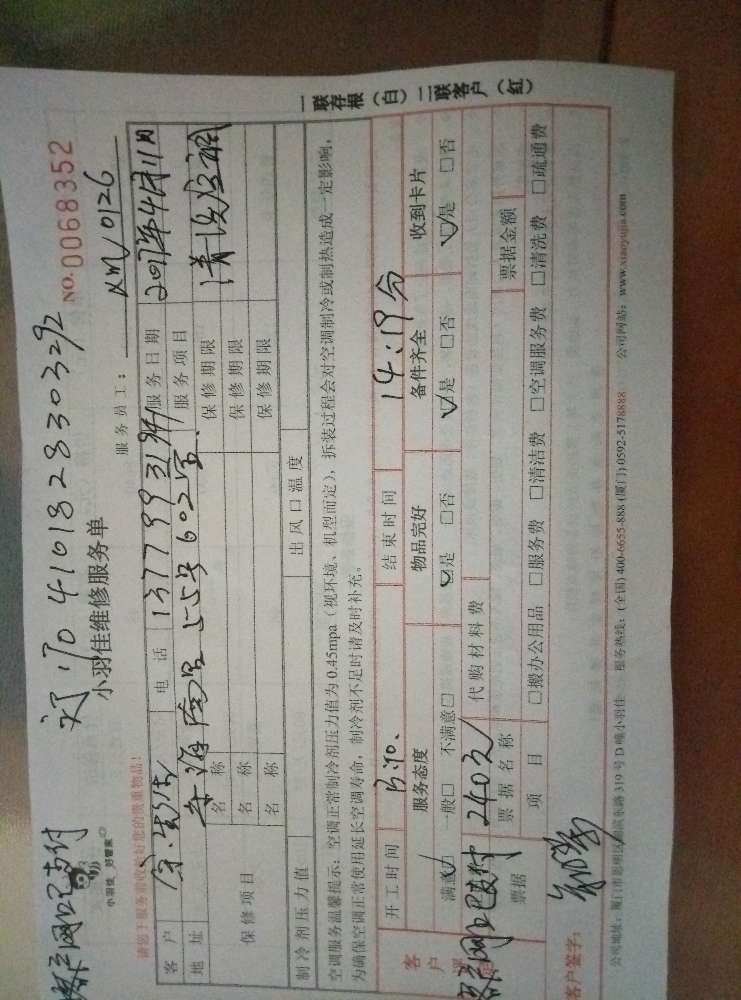 网 支付
4101828303292
小羽佳维修服务单
NO.0068352
小羽佳 好管家
服务员工： xm/0126
请您于服务前收拾好您的贵重物品！
客户 电话 服务日期 2017年4月11日
地址 602室 服务项目 清洗空调
保修项目 名称 保修期限
名称 保修期限
名称 保修期限
制冷剂压力值 出风口温度
空调服务温馨提示：空调正常制冷剂压力值为0.45mpa（视环境、机型而定），拆装过程会对空调制冷或制热造成一定影响，
为确保空调正常使用延长空调寿命，制冷剂不足时请及时补充。
开工时间 结束时间 14:19分
客户 服务态度 物品完好 备件齐全 收到卡片
满意☑ 一般□ 不满意□ ☑是 □否 ☑是 □否 ☑是 □否
网 支付 240元 代购材料费
票据 票据名称 票据金额
项目 □搬办公用品 □服务费 □清洁费 □空调服务费 □清洗费 □疏通费
客户签字：
公司地址：厦门市思明区湖滨东路319号D幢小羽佳 服务热线：(全国)400-6655-888 (厦门)0592-5178888 公司网站：www.xiaoyujia.com
一联存根（白）二联客户（红）